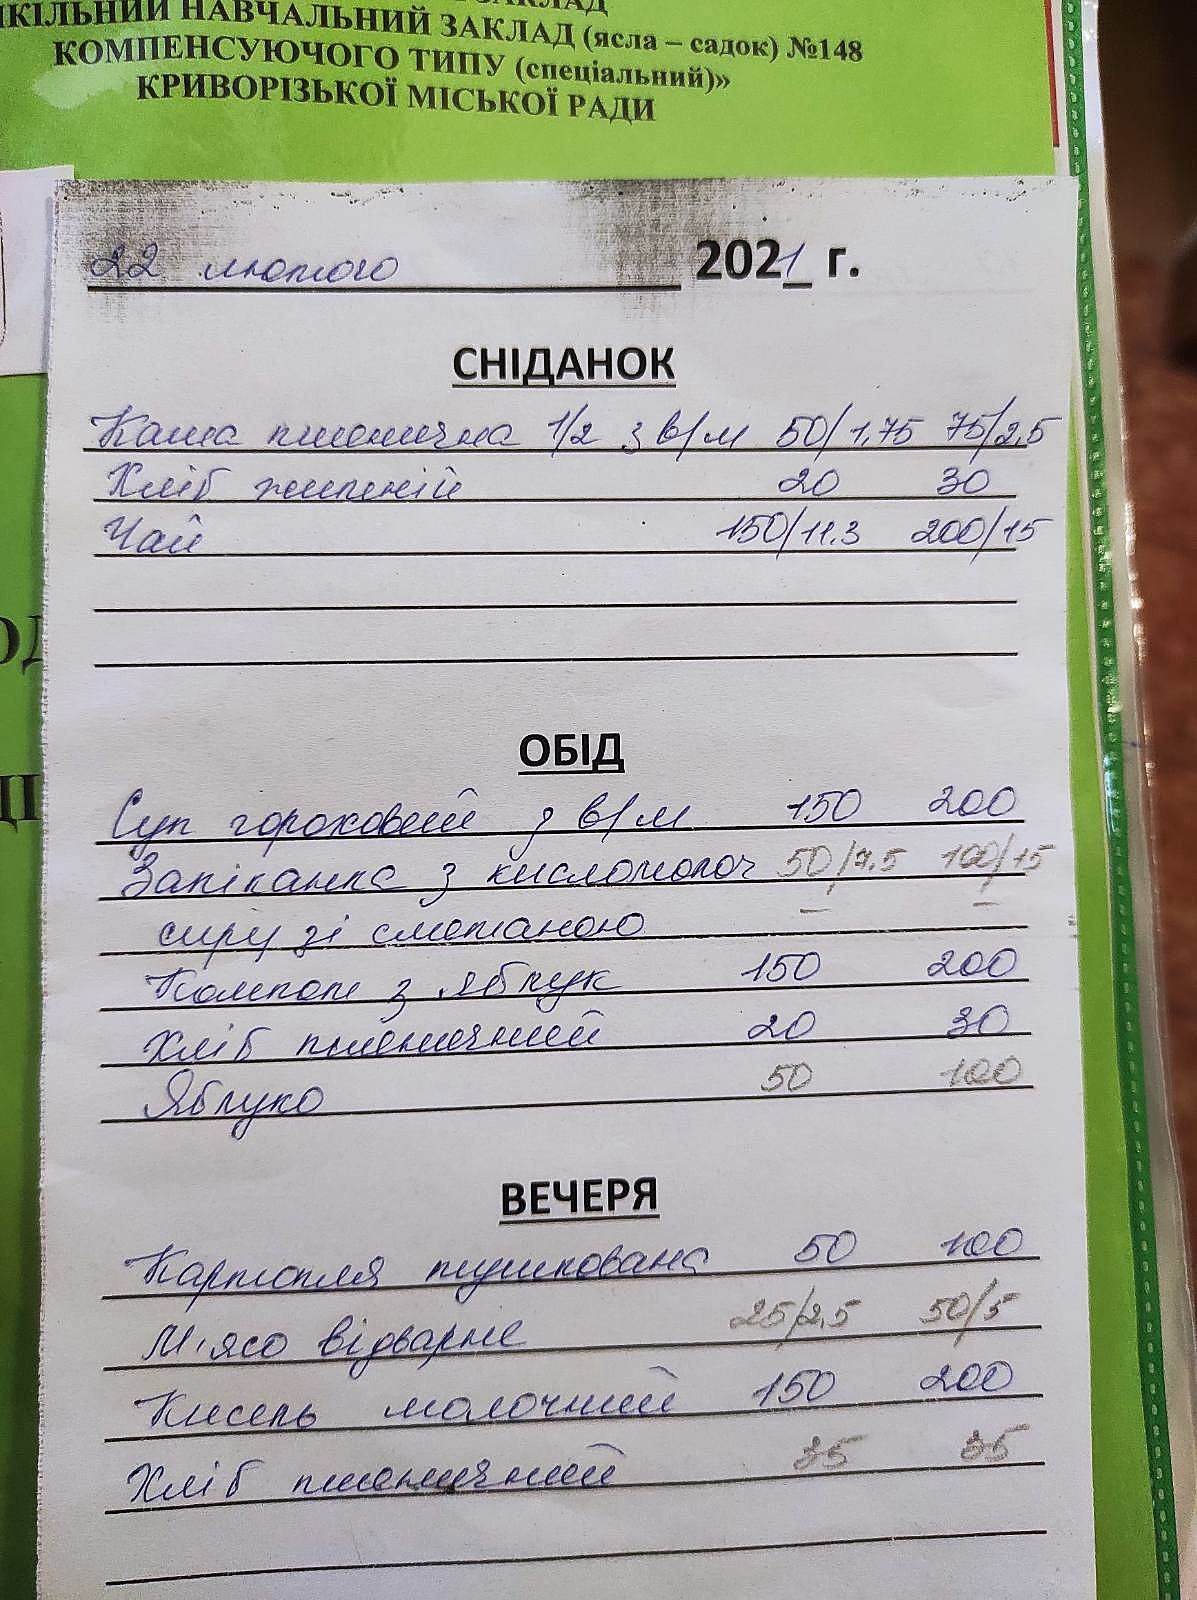 ЗАКЛАД
ШКІЛЬНИЙ НАВЧАЛЬНИЙ ЗАКЛАД (ясла – садок) №148
КОМПЕНСУЮЧОГО ТИПУ (спеціальний)»
КРИВОРІЗЬКОЇ МІСЬКОЇ РАДИ
22 лютого 2021 г.
СНІДАНОК
Каша пшенична 1/2 з в/м 50/1,75 75/2,5
Хліб житній 20 30
Чай 150/11.3 200/15
ОБІД
Суп гороховий з в/м 150 200
Запіканка з кисломолоч 50/7.5 100/15
сиру зі сметаною – –
Компот з яблук 150 200
Хліб пшеничний 20 30
Яблуко 50 100
ВЕЧЕРЯ
Картопля тушкована 50 100
М'ясо відварне 25/2,5 50/5
Кисель молочний 150 200
Хліб пшеничний 35 35